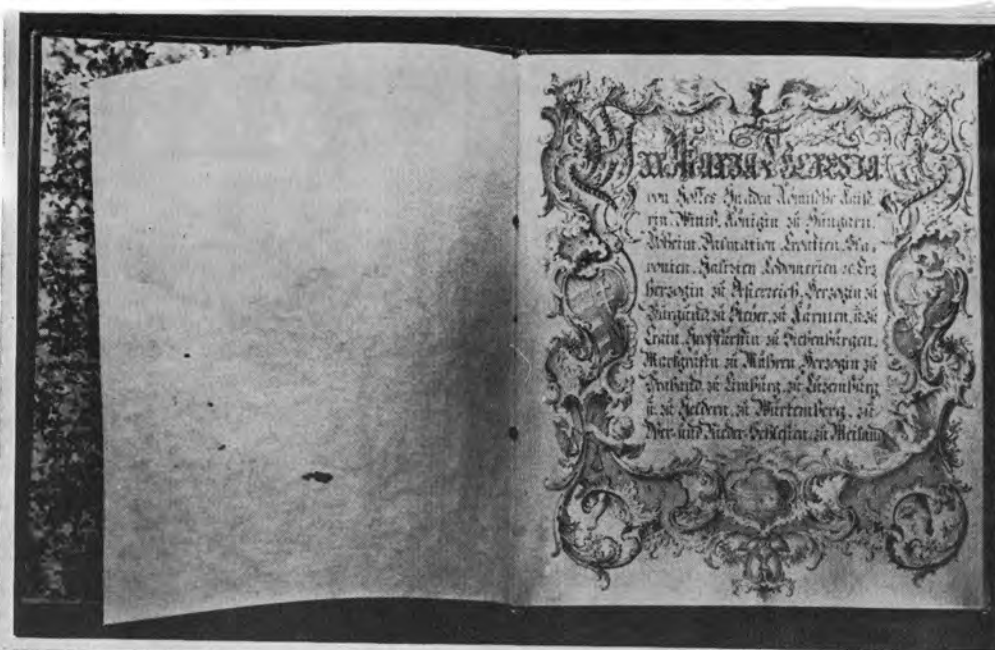 Wir MARIA THERESIA
von Gottes Gnaden Römische Kaiſ.
rin, Wittib, Königin zu Hungarn,
Böheim, Dalmatien, Croatien, Sla,
vonien, Gallizien, Lodomerien ꝛc Erz
Herzogin zu Öſterreich, Herzogin zu
Burgund, zu Steyer, zu Kärnten, u. zu
Crain, Großfürſtin zu Siebenbürgen,
Markgräfin zu Mähren, Herzogin zu
Braband, zu Limburg, zu Luzemburg
u. zu Geldern, zu Würtemberg, zu
Ober- und Nieder-Schleſien, zu Meiland